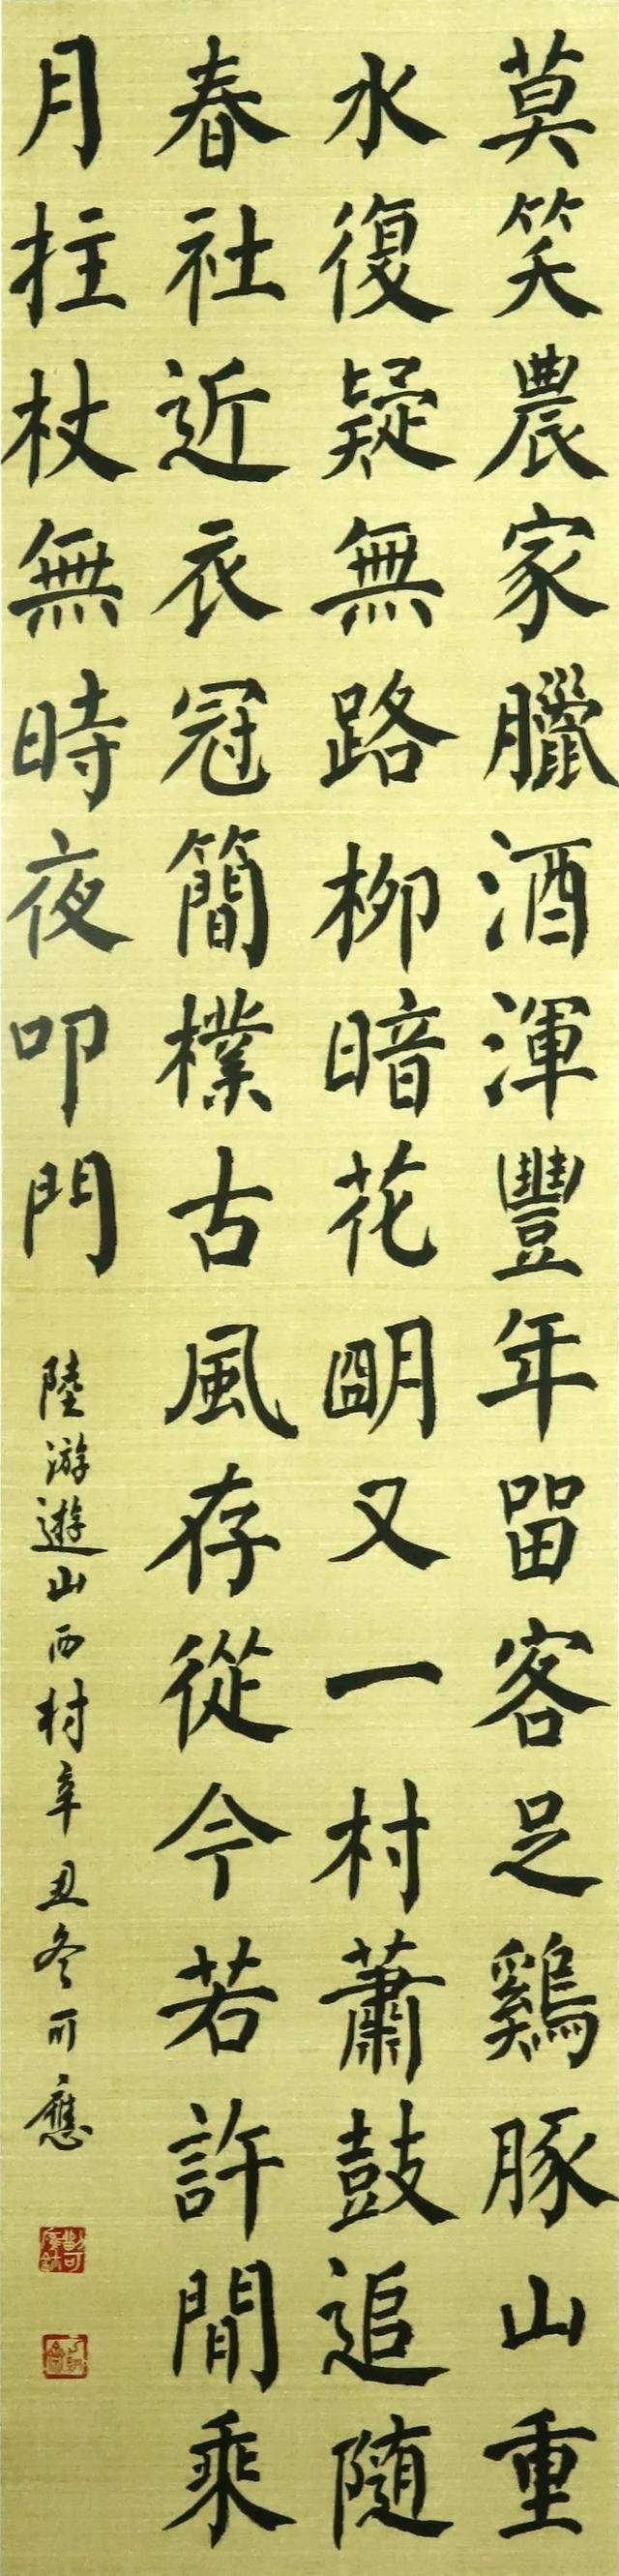 莫笑農家臘酒渾豐年留客足鷄豚山重
水復疑無路柳暗花明又一村蕭鼓追隨
春社近衣冠簡樸古風存從今若許閒乘
月拄杖無時夜叩門
陸游遊山西村辛丑冬可應